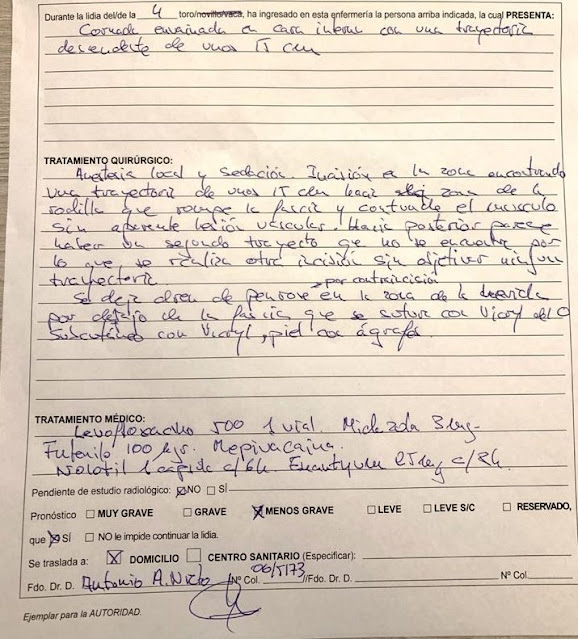 Durante la lidia del/de la 4 toro/novillo/vaca, ha ingresado en esta enfermería la persona arriba indicada, la cual PRESENTA:
Cornada envainada en cara interna con una trayectoria
descendente de unos 15 cm
TRATAMIENTO QUIRÚRGICO:
Anestesia local y sedación. Incisión en la zona encontrando
una trayectoria de unos 15 cm hacia zona de la
rodilla que rompe la fascia y contunde el músculo
sin aparente lesión vascular. Hacia posterior parece
haber un segundo trayecto que no se encuentra por
lo que se realiza otra incisión sin objetivar ningún
trayectoria
por contraincisión
Se deja dren de penrose en la zona de la herida
por debajo de la fascia que se sutura con Vicryl del 0
Subcutáneo con Vicryl, piel con ágrafes.
TRATAMIENTO MÉDICO:
Levofloxacino 500 1 vial. 3 mg
100 Mepivacaina.
Nolotil 1 c/6h. Enantyum 25 mg c/8h.
Pendiente de estudio radiológico: NO SÍ
Pronóstico MUY GRAVE GRAVE MENOS GRAVE LEVE LEVE S/C RESERVADO,
que SÍ NO le impide continuar la lidia.
Se traslada a: DOMICILIO CENTRO SANITARIO (Especificar):
Fdo. Dr. D. Antonio A. Nº Col. 06/5173 //Fdo. Dr. D. Nº Col.
Ejemplar para la AUTORIDAD.